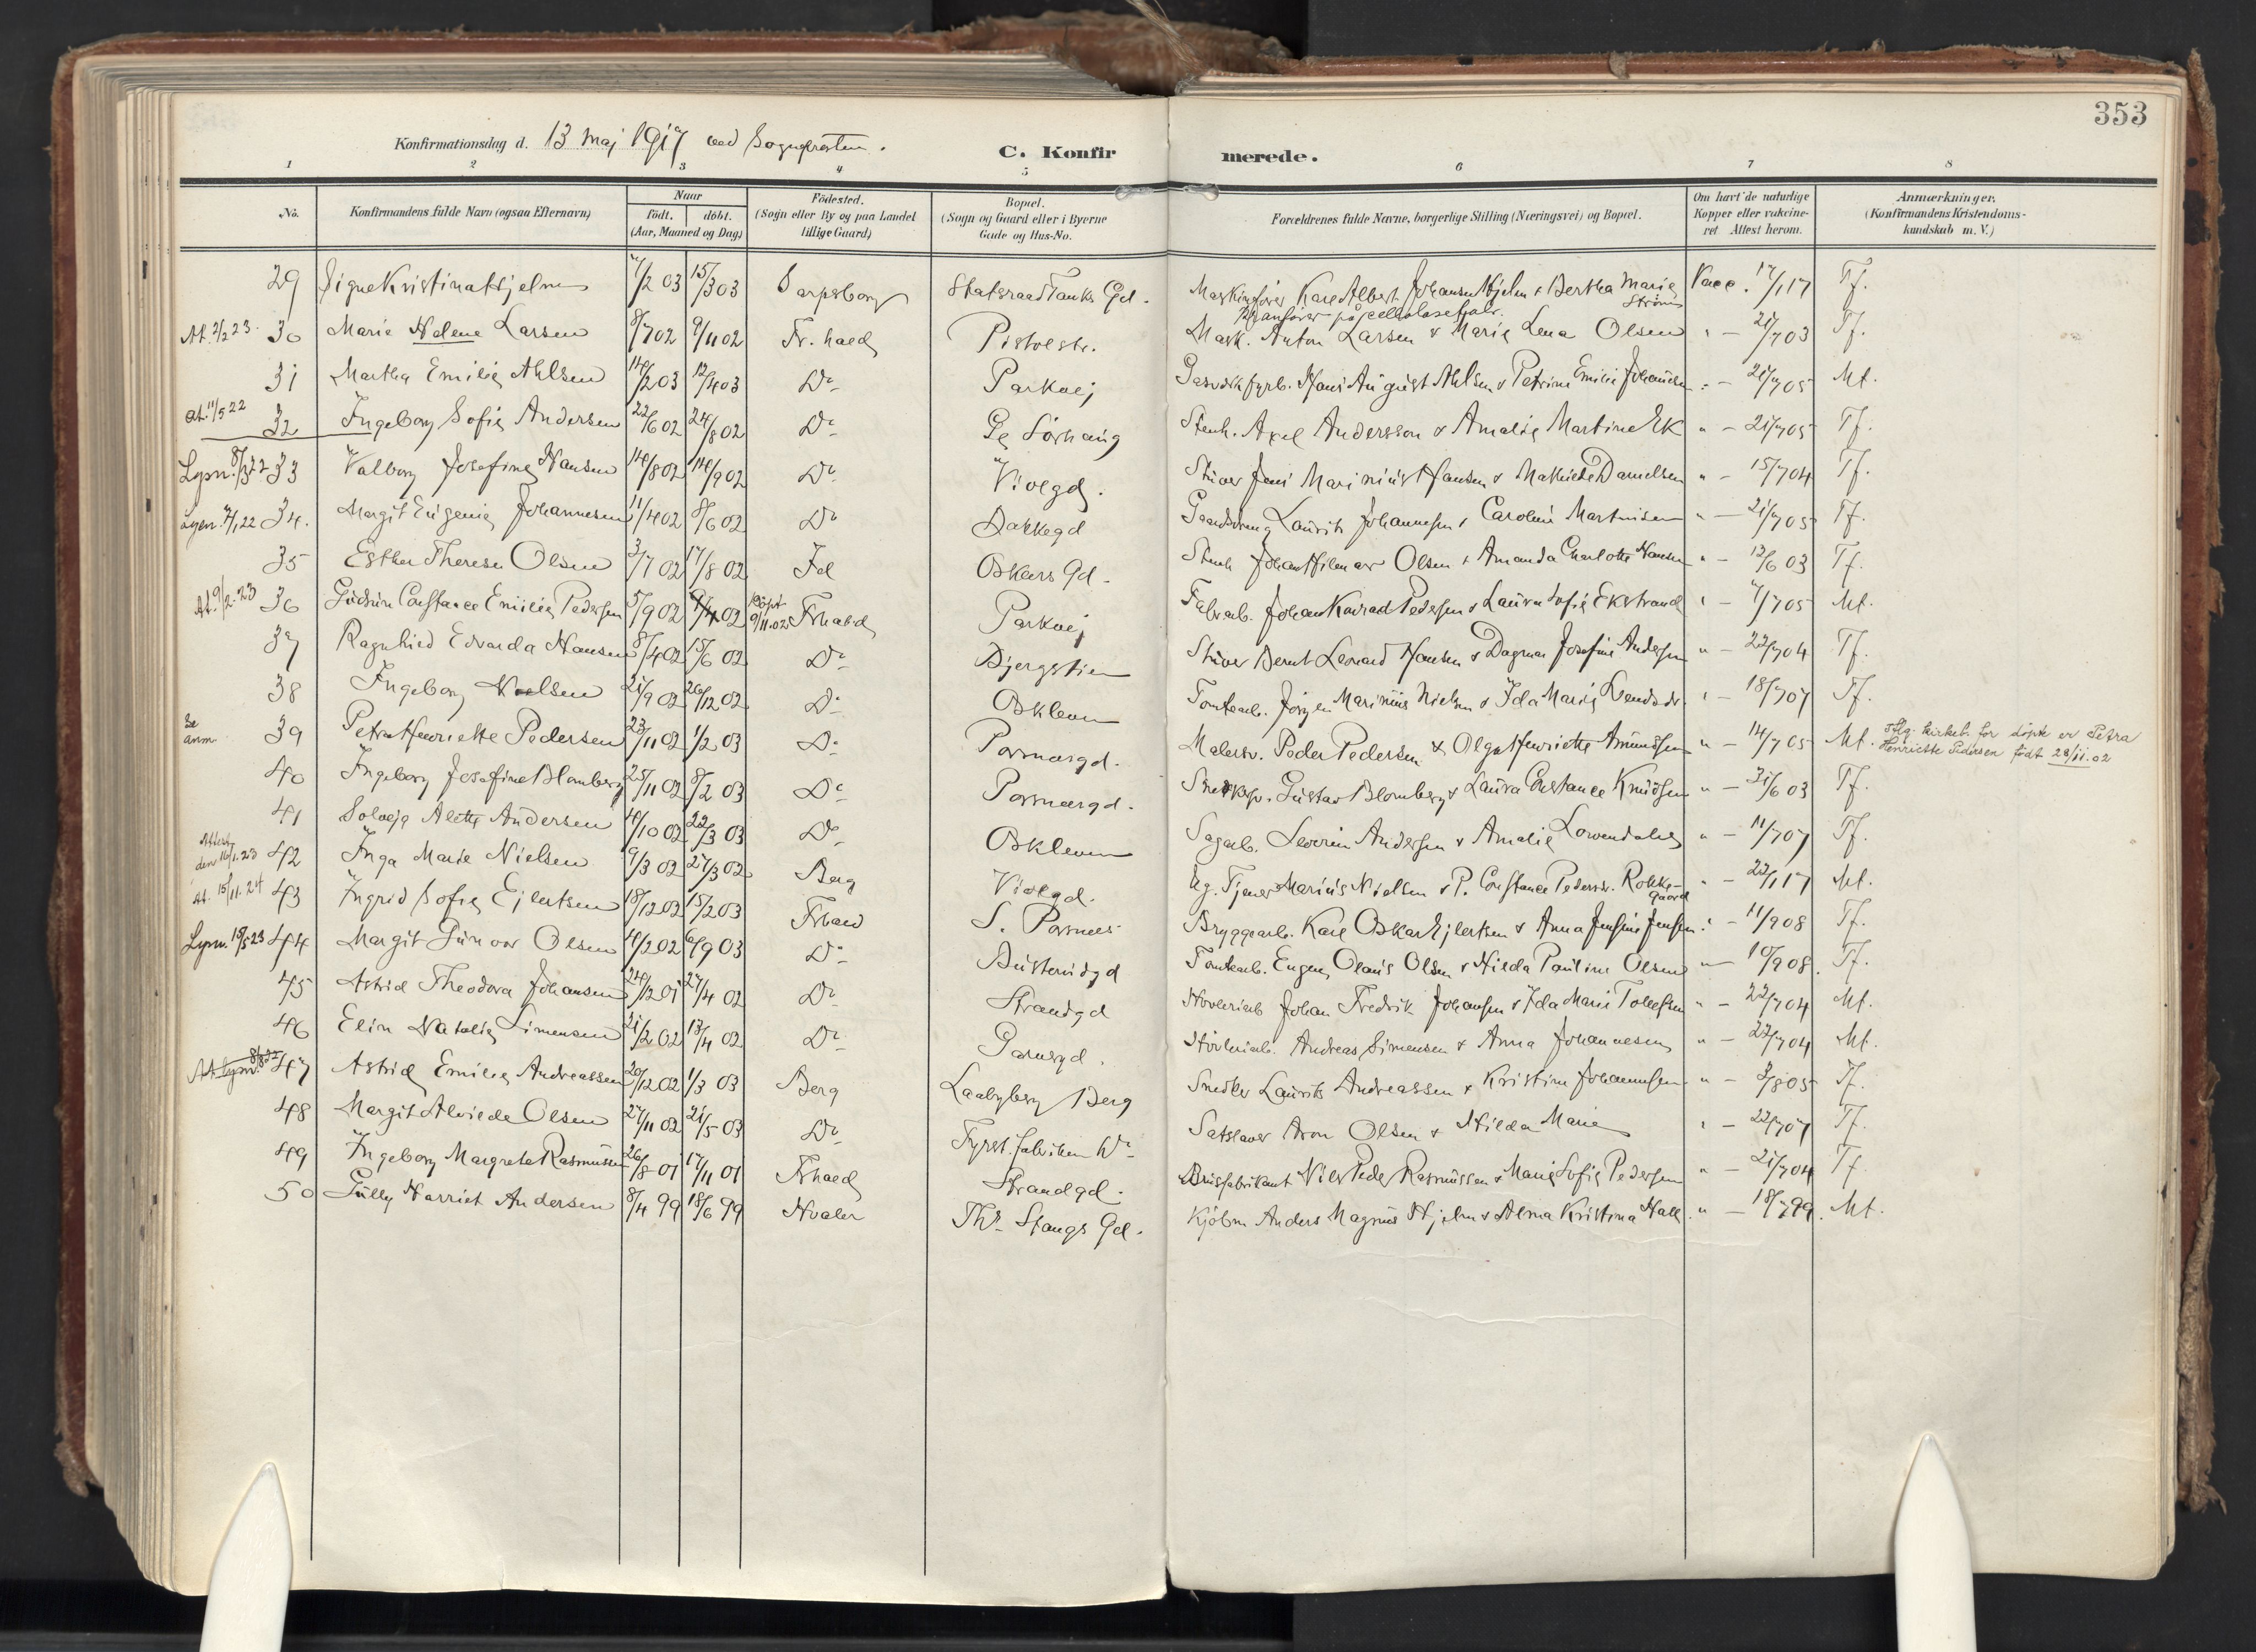 353
Konfirmationsdag d. 13 maj 1917 ved Sognepresten.
C. Konfirmerede.
1 2 3 4 5 6 7 8
No. | Konfirmandens fulde Navn (ogsaa Efternavn) | Naar født. døbt. (Aar, Maaned og Dag) | Fødested. (Sogn eller By og paa Landet tillige Gaard) | Bopæl. (Sogn og Gaard eller i Byerne Gade og Hus-No. | Forældrenes fulde Navne, borgerlige Stilling (Næringsvei) og Bopæl. | Om havt de naturlige Kopper eller vakcineret Attest herom. | Anmærkninger. (Konfirmandens Kristendomskundskab m. V.)
29 Signe Kristina Hjelm 7/2 03 15/3 03 Sarpsborg Statsraad Tanks Gd. Maskinfører Karl Albert Johansen Hjelm & Bertha Marie Strøm Vacc. 17/1 17 Tf.
Kranfører på cellulosefabr.
At. 2/2 23. 30 Marie Halene Larsen 8/7 02 9/11 02 Fr.hald Pistolstr. Mask. Anton Larsen & Marie Lena Olsen " - 21/7 03 Tf.
31 Martha Emilie Ahlsen 14/2 03 12/4 03 Do Parkvej Gasværkfyrb. Hans August Ahlsen & Petrine Emilie Johansen " - 21/7 05 Mt.
At. 11/5 22 32 Ingeborg Sofie Andersen 22/6 02 24/8 02 Do Ge Sørhaug Stenh. Axel Andersson & Amalie Martine Ek " - 21/7 05 Tf.
Lysn. 8/3 22 33 Valborg Josefine Hansen 14/8 02 14/9 02 Do Violgd. Stuer Jens Marinius Hansen & Mathilde Danielsen " - 15/7 04 Tf.
Lysn. 7/1 22 34. Margit Eugenie Johannesen 11/4 02 8/6 02 Do Bakkegd Gaardsdreng Laurits Johannesen & Caroline Martinisen " - 21/7 05 Tf.
35 Esther Therese Olsen 3/7 02 17/8 02 Id Oskars Gd. Stenh Johan Hilmar Olsen & Amanda Charlotte Hansen " - 12/6 03 Tf.
At. 9/2. 23 36 Gudrun Constance Emilie Pedersen 5/9 02 døpt 9/11.02 Frhald Parkvej Fabrarb. Johan Konrad Pedersen & Laura Sofie Ekstrand " - 7/7 05 Mt.
37 Ragnhild Edvarda Hansen 8/4 02 15/6 02 Do Bjergstien Stuer Bernt Leonard Hansen & Dagmar Josefine Andersen " - 22/7 04 Tf.
38 Ingeborg Nielsen 21/9 02 26/12 02 Do Oskleven Tomtearb. Jørgen Marinius Nielsen & Ida Marie " - 18/7 07 Tf.
Se anm. 39 Petra Henriette Pedersen 23/11 02 1/2 03 Do Porsnesgd. Malersv. Peder Pedersen & Olga Henriette Amundsen " - 14/7 05 Mt. Flg. kirkeb. for døpte er Petra Henriette Pedersen født 28/11.02
40 Ingeborg Josefine Blomberg 25/11 02 8/2 03 Do Porsnesgd. Snedkersv. Gustav Blomberg & Laura Constance Knudsen " - 31/6 03 Tf.
41 Solveig Alette Andersen 4/10 02 22/3 03 Do Oskleven Sagarb. Severin Andersen & Amalie Lowendahl " - 11/7 07 Tf.
Attest den 16/1. 23 42 Inga Marie Nielsen 9/3 02 27/3 02 Berg Violgd. Marius Nielsen & P. Constance Pedersdr. Rokkegaard " - 22/1 17 Mt.
At. 15/11. 24 43 Ingrid Sofie Ejlertsen 18/12 02 15/2 03 Frhald S. Porsnes Bryggearb. Karl Oskar Ejlertsen & Anna Jensine Jensen " 11/9 08 Tf.
Lysn. 15/5 23 44 Margit Gunvor Olsen 4/2 02 6/9 03 Do Austerudgd Tomtearb. Eugen Olaus Olsen & Hilda Pauline Olsen " - 10/9 08. Tf.
45 Astrid Theodora Johansen 24/12 01 27/4 02 Do Strandgd Høvleriarb Johan Fredrik Johansen & Ida Marie Tollefsen " - 22/7 04 Mt.
46 Elin Natalie Simensen 21/2 02 13/4 02 Do Garvergd. Høvleriarb. Andreas Simensen & Anna Johannesen " - 22/7 04 Mt.
At. lysn. 8/8 22 47 Astrid Emilie Andreassen 20/12 02 1/3 03 Berg Laabyberg Berg Snedker Laurits Andreassen & Kristine Johannesen " - 3/8 05 Tf.
48 Margit Alvilde Olsen 27/11 02 21/5 03 Do Fyrst.fabriken Do Satslaver Aron Olsen & Hilda Marie " - 22/7 07 Tf.
49 Ingeborg Margrete Rasmussen 26/8 01 17/11 01 Frhald Strandgd. Brusfabrikant Niels Peder Rasmussen & Marie Sofie Pedersen " - 21/7 04 Tf.
50 Gully Harriet Andersen 8/4 99 18/6 99 Hvaler Ths. Stangs Gd. Kjøbm Anders Magnus Hjelm & Alma Kristina Hall " - 18/7 99. Mt.